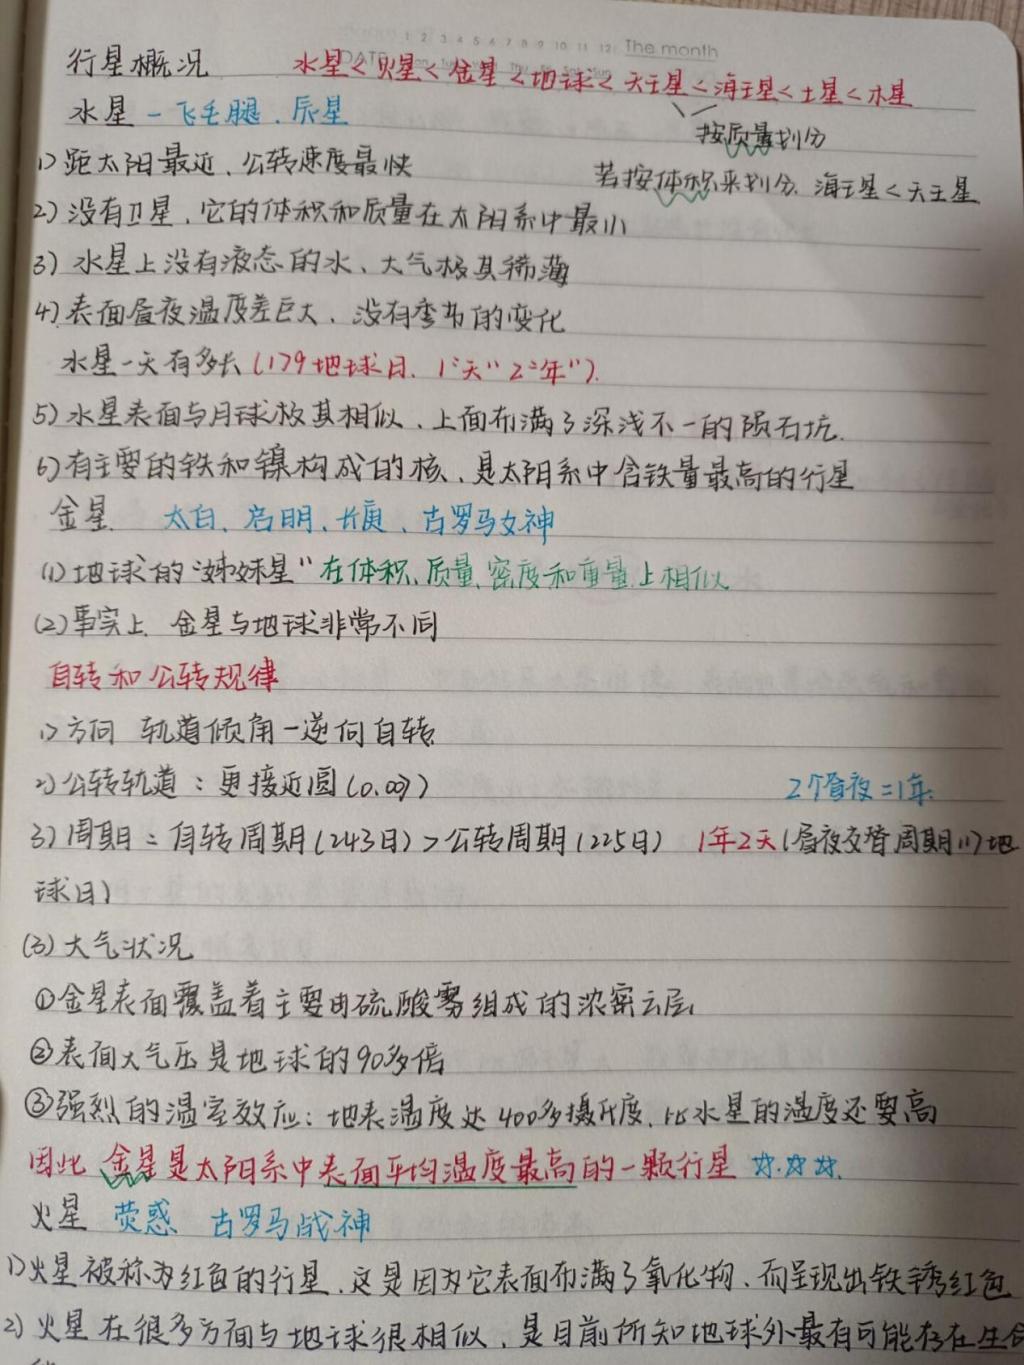 1 2 3 4 5 6 7 8 9 10 11 12 The month
DATE
行星概况 水星<火星<金星<地球<天王星<海王星<土星<木星
水星-飞毛腿、辰星
按质量划分
1)距太阳最近、公转速度最快
若按体积来划分、海王星<天王星
2)没有卫星、它的体积和质量在太阳系中最小
3)水星上没有液态的水、大气极其稀薄
4)表面昼夜温度差巨大、没有季节的变化
水星一天有多长(179地球日、1"天"2"年").
5)水星表面与月球极其相似、上面布满了深浅不一的陨石坑.
6)有主要的铁和镍构成的核、是太阳系中含铁量最高的行星
金星 太白、启明、长庚、古罗马女神
(1)地球的"姊妹星"在体积、质量、密度和重量上相似
(2)事实上 金星与地球非常不同
自转和公转规律
1)方向 轨道倾角-逆向自转
2)公转轨道:更接近圆(0.007) 2个昼夜=1年.
3)周期=自转周期(243日)>公转周期(225日) 1年2天(昼夜交替周期117地
球日)
(3)大气状况
①金星表面覆盖着主要由硫酸雾组成的浓密云层
②表面大气压是地球的90多倍
③强烈的温室效应:地表温度达400多摄氏度、比水星的温度还要高
因此 金星是太阳系中表面平均温度最高的一颗行星 ☆.☆.☆.
火星 荧惑 古罗马战神
1)火星被称为红色的行星、这是因为它表面布满了氧化物、而呈现出铁锈红色
2)火星在很多方面与地球很相似、是目前所知地球外最有可能存在生命